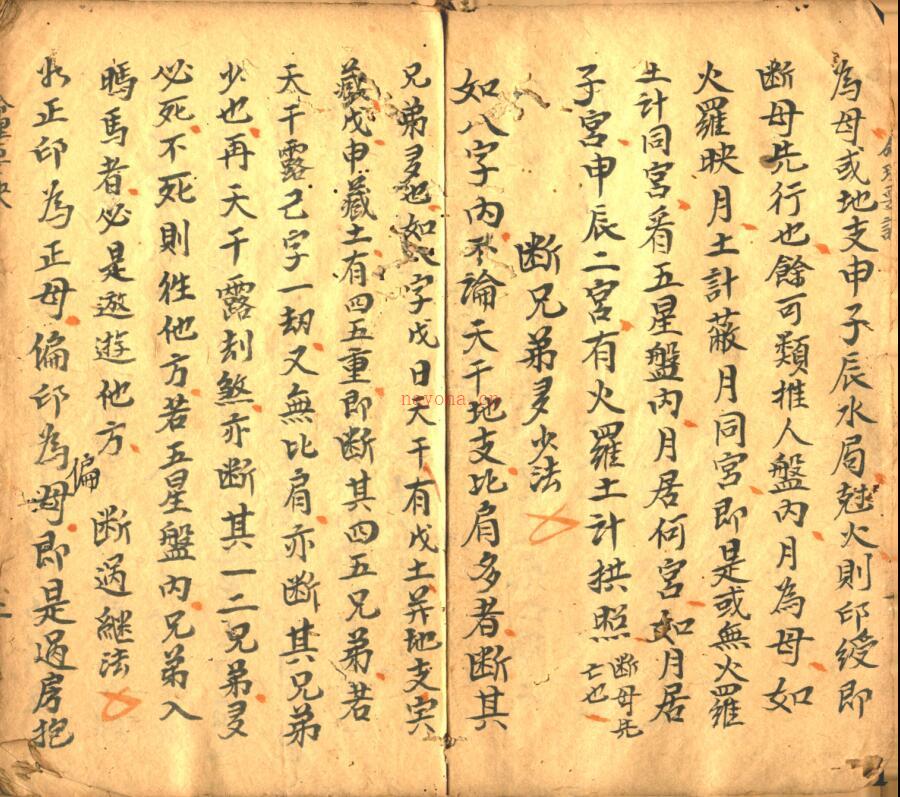 為母或地支申子辰水局尅火則卯綬即
断母先行也餘可類推人盤內月為母如
火羅映月土計蔽月同宮即是或無火羅
土計同宮看五星盤內月居何宮如月居
子宮申辰二宮有火羅土計拱照断母先亡也
断兄弟多少法
如八字內不論天干地支比肩多者断其
兄弟多也如八字戊日天干有戊土并地支寅
藏戊申藏土有四五重即断其四五兄弟若
天干露己字一劫又無比肩亦断其兄弟
少也再天干露刦煞亦断其一二兄弟多
必死不死則徃他方若五星盤內兄弟入
馬者必是遨遊他方
断過継法
以正卯為正母偏卯為偏母即是過房抱
nayona.cn